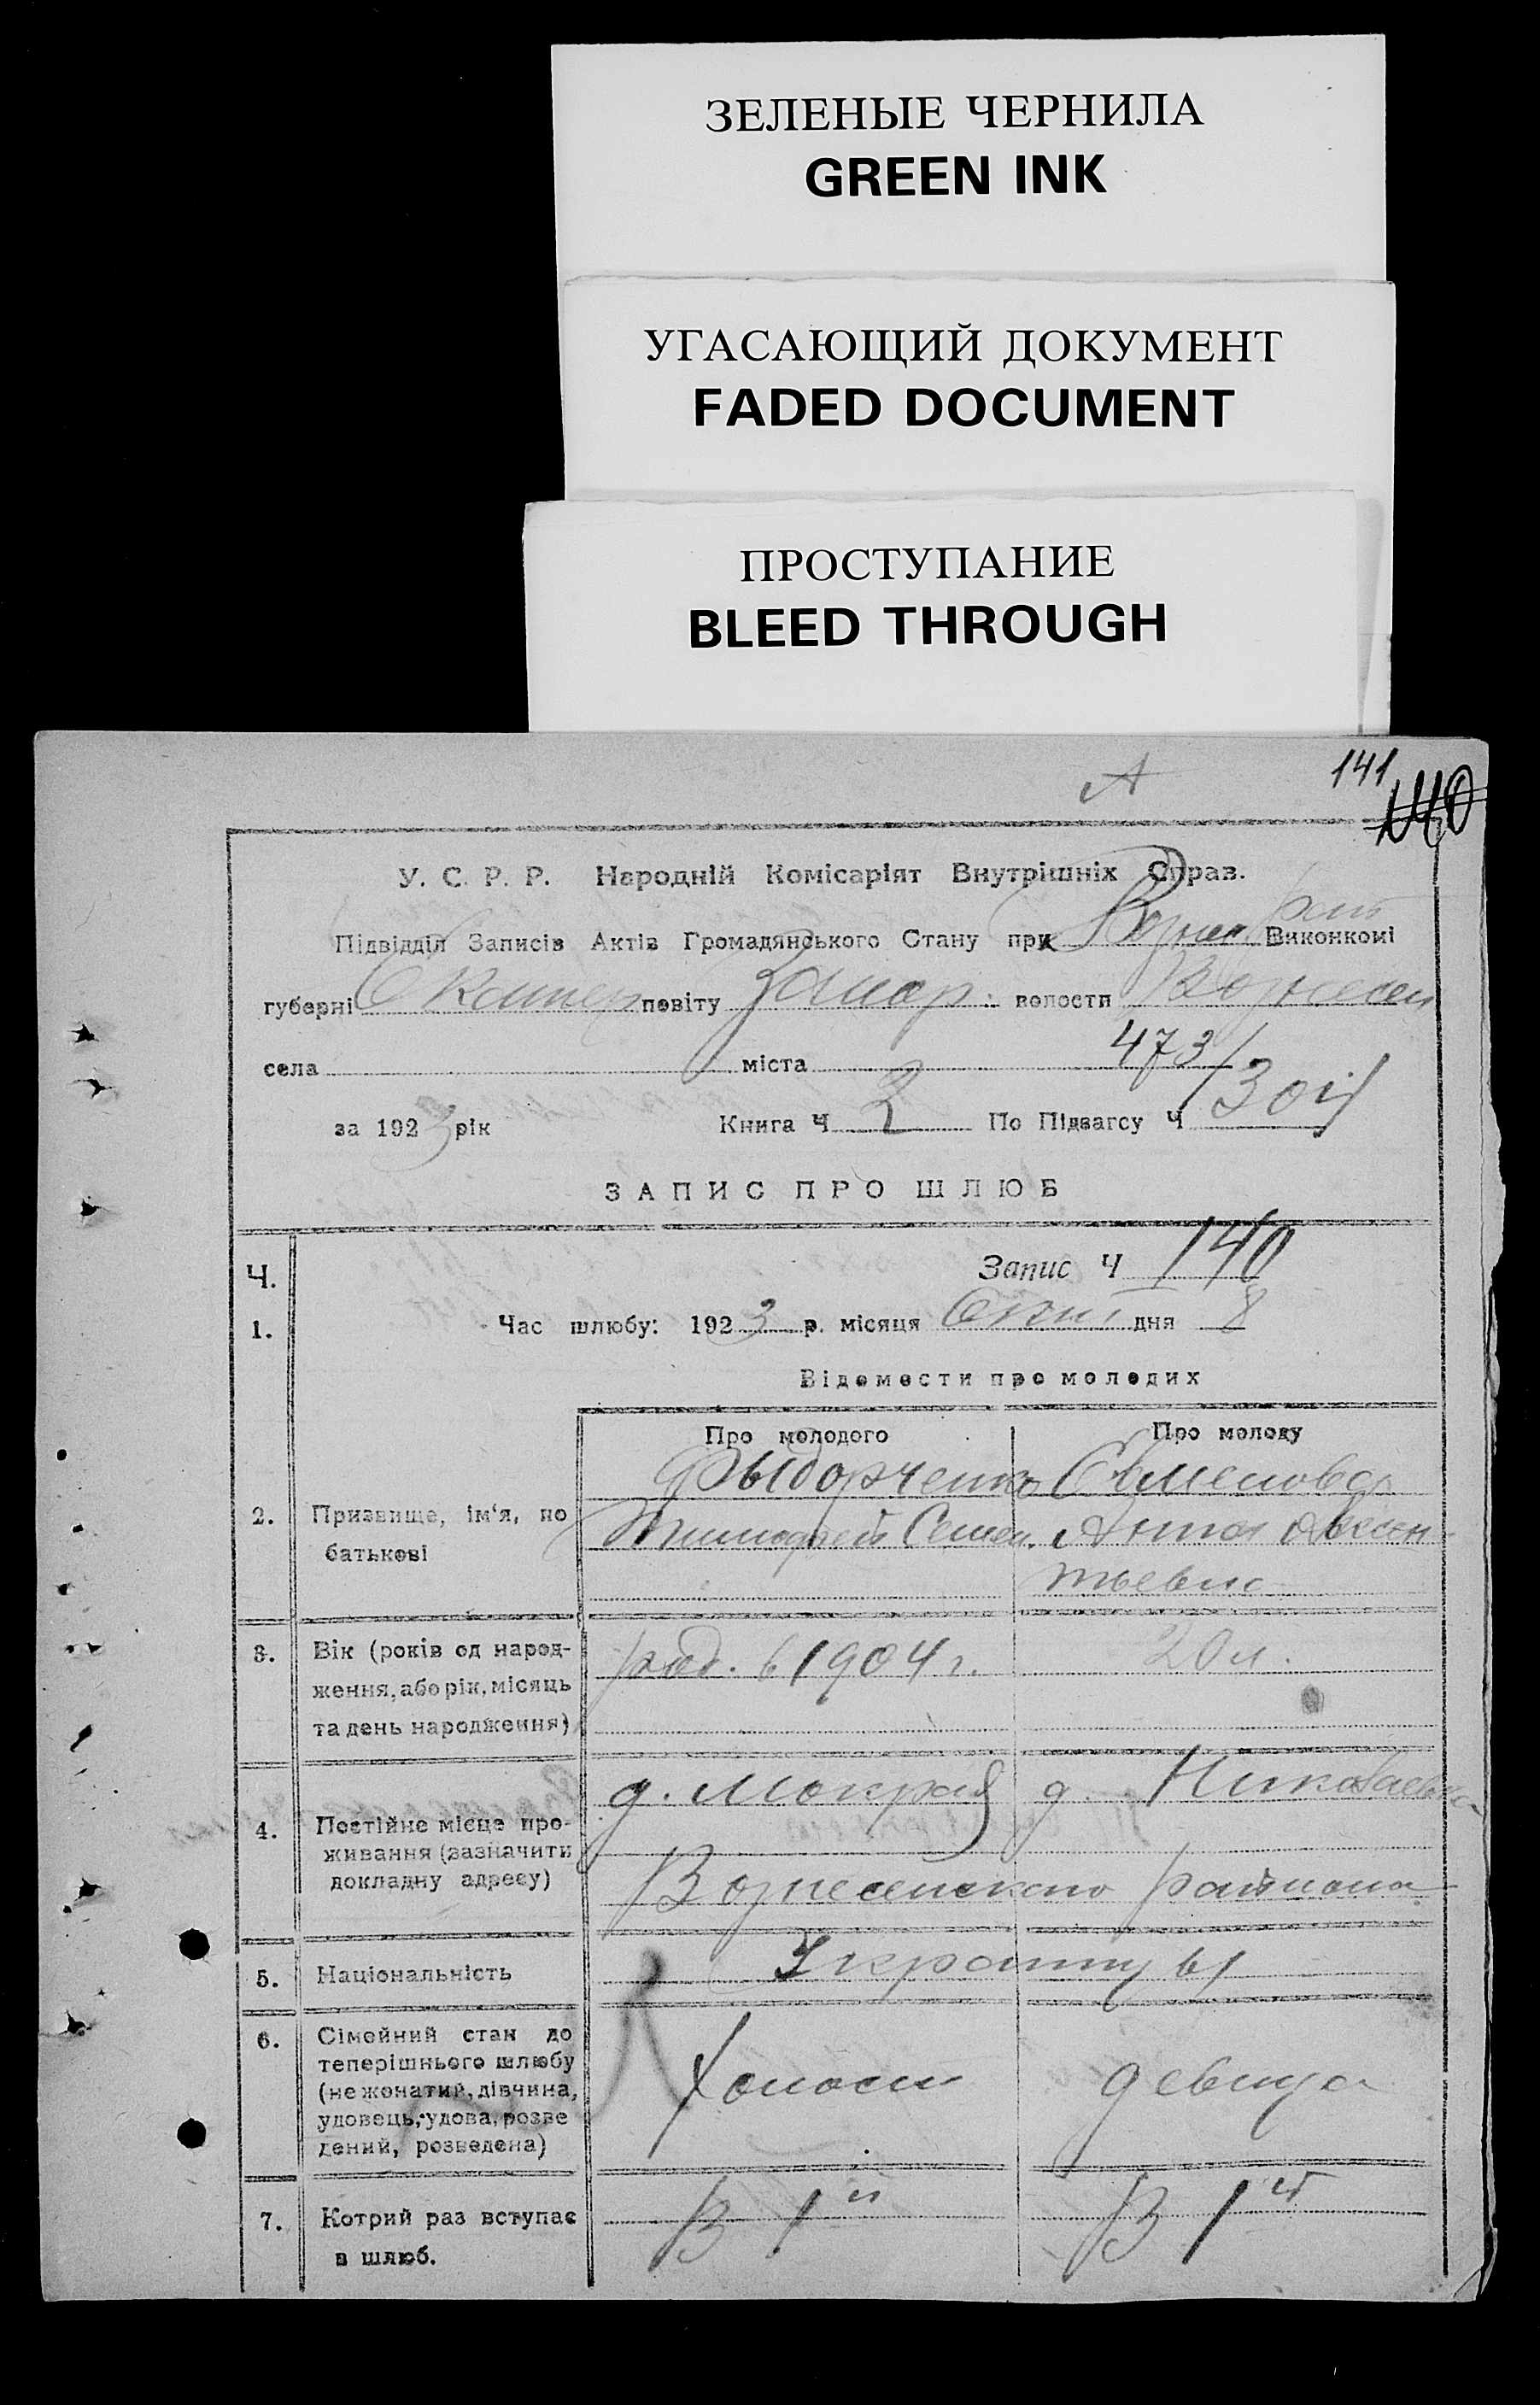 ЗЕЛЕНЫЕ ЧЕРНИЛА
GREEN INK
УГАСАЮЩИЙ ДОКУМЕНТ
FADED DOCUMENT
ПРОСТУПАНИЕ
BLEED THROUGH
А
141
140
У. С. Р. Р. Народній Комісаріят Внутрішніх Справ.
Підвідділ Записів Актів Громадянського Стану при Вознес рай Виконкомі
губерні Екатер повіту Запор. волости Вознесен
села міста 473/
за 1923 рік Книга Ч 2 По Підзагсу Ч
ЗАПИС ПРО ШЛЮБ
Ч. Запис Ч 140
1. Час шлюбу: 1923 р. місяця Окт дня 8
Відомости про молодих
Про молодого Про молоду
Семенова
2. Призвище, ім‘я, по Тимофей Семен. Анна Авксен-
батькові тьевна
3. Вік (років од народ- род. в 1904 г. 20 л.
ження, або рік, місяць
та день народження)
д. Мокрая д. Николаевка
4. Постійне місце про-
живання (зазначити Вознесенского района
докладну адресу)
5. Національність Украинцы
6. Сімейний стан до
теперішнього шлюбу
(не жонатий, дівчина, Холост девица
удовець, удова, розве
дений, розведена)
7. Котрий раз вступає В 1й В 1й
в шлюб.